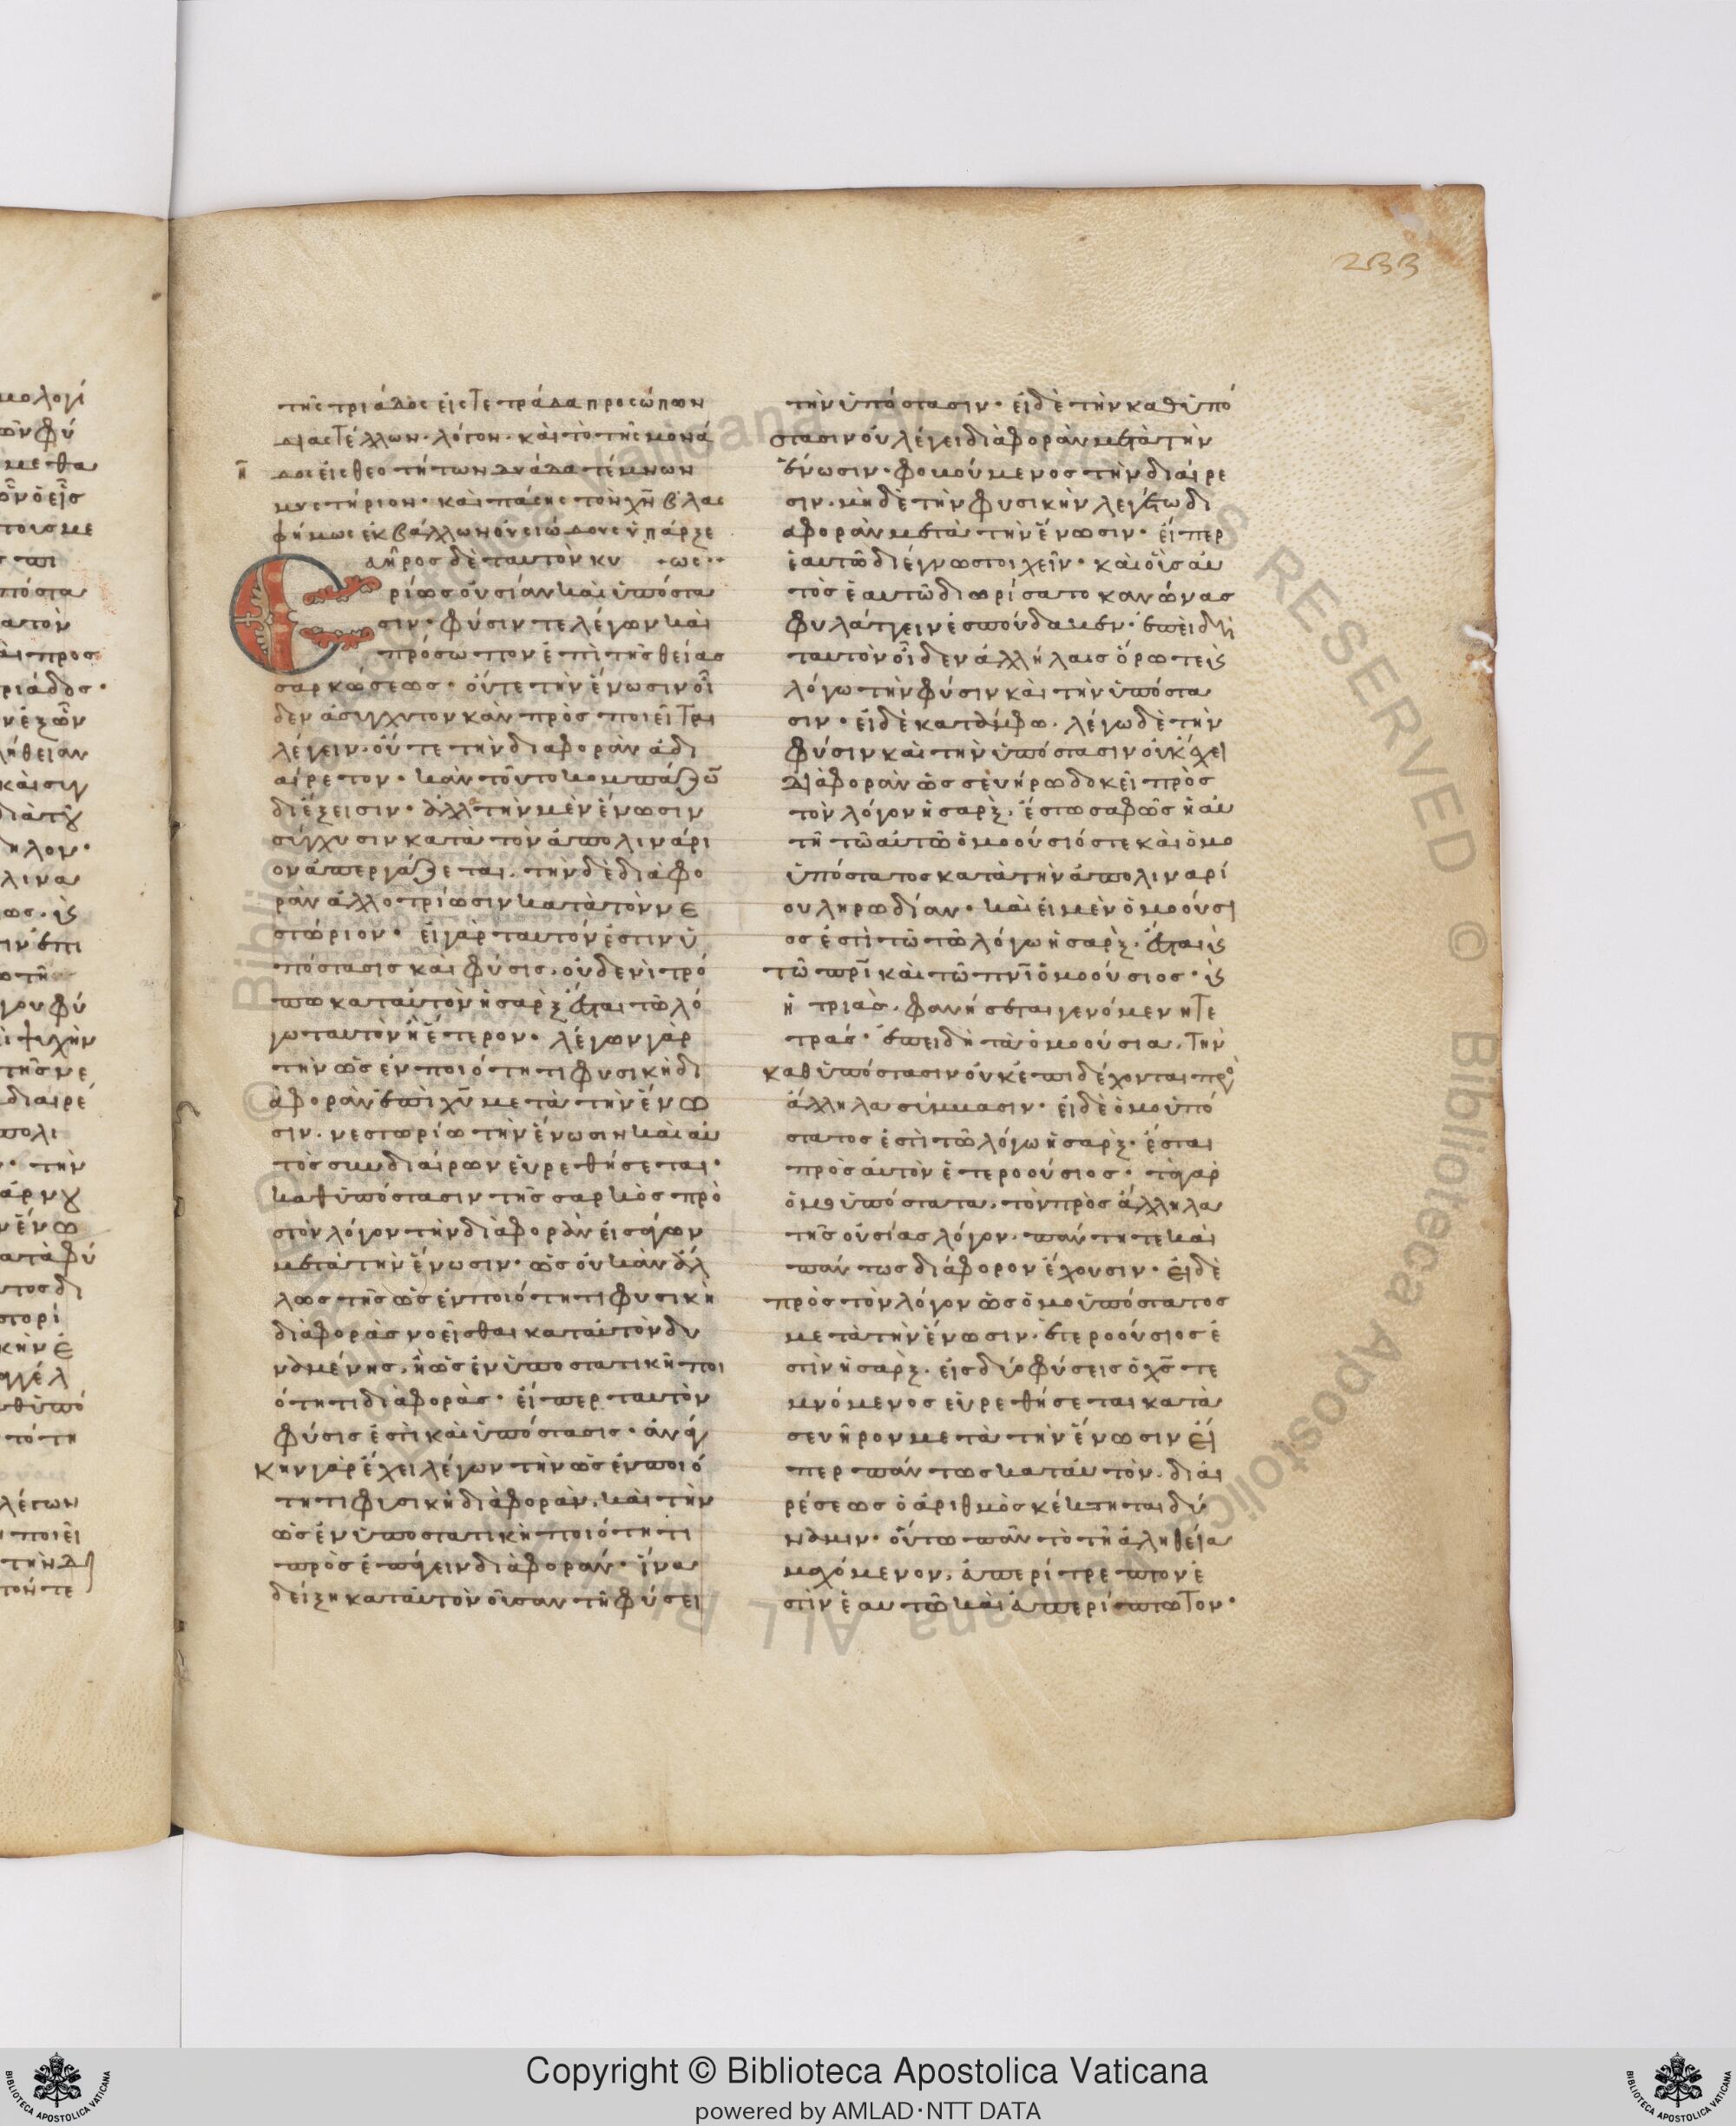 233
τῆς τριάδος εἰς τετράδα προσώπων
διαστέλλων λόγον· καὶ τὸ τῆς μονά
δος εἰς θεοτήτων δυάδα τέμνων
μυστήριον· καὶ πάσης τὸν χν βλασ
φήμως ἐκβάλλων οὐσιώδους ὑπάρξε
ως··
Σευῆρος δὲ ταυτὸν κυ
ρίως οὐσίαν καὶ ὑπόστα
σιν· φύσιν τε λέγων καὶ
πρόσωπον ἐπὶ τῆς θείας
σαρκώσεως· οὔτε τὴν ἕνωσιν οἶ
δεν ἀσύγχυτον κἂν προσποιεῖται
λέγειν· οὔτε τὴν διαφορὰν ἀδι
αίρετον· κἂν τοῦτο κομπάζων
διέξεισιν· ἀλλὰ τὴν μὲν ἕνωσιν
σύγχυσιν κατὰ τὸν ἀπολινάρι
ον ἀπεργάζεται· τὴν δὲ διαφο
ρὰν ἀλλοτρίωσιν κατὰ τὸν νε
στώριον· εἰ γὰρ ταυτόν ἐστιν ὑ
πόστασις καὶ φύσις· οὐδενὶ τρό
πω κατ' αυτὸν ἡ σαρξ ἔσται τῶ λό
γω ταυτὸν ἢ ἕτερον· λέγων γὰρ
τὴν ὡς ἐν ποιότητι φυσικῆ δι
αφορὰν ἐπὶ χυ μετὰ τὴν ἕνω
σιν· νεστωρίω τὴν ἕνωσιν καὶ αὐ
τὸς συνδιαίρων εὑρεθήσεται·
καθ' ὑπόστασιν τῆς σαρκὸς πρὸ
ς τὸν λόγον τὴν διαφορὰν εἰσάγων
μετὰ τὴν ἕνωσιν· ὡς οὐκ ἂν ἄλ
λως τῆς ὡς ἐν ποιότητι φυσικῆ
διαφορᾶς νοεῖσθαι κατ' αυτὸν δυ
ναμένης· ἢ ὡς ἐν ὑποστατικῆ ποι
ότητι διαφορᾶς· εἴπερ ταυτὸν
φύσις ἐστὶ καὶ ὑπόστασις· ἀνάγ
κην γὰρ ἔχει λέγων τὴν ὡς ἐν ποιό
τητι φυσικῆ διαφοράν· καὶ τὴν
ὡς ἐν ὑποστατικῆ ποιότητι
προσεπάγειν διαφοράν· ἵνα
δείξη κατ' αυτὸν οὖσαν τῆ φύσει
τὴν ὑπόστασιν· εἰ δὲ τὴν καθ' ὑπό
στασιν οὐ λέγει διαφορὰν μετὰ τὴν
ἕνωσιν· φομούμενος τὴν διαίρε
σιν· μηδὲ τὴν φυσικὴν λεγέτω δι
αφορὰν μετὰ τὴν ἕνωσιν· εἴπερ
ἑαυτῶ διέγνω στοιχεῖν· καὶ οἷς αὐ
τὸς ἑαυτῶ διωρίσατο κανόνας
φυλάττειν ἐσπούδακεν· ἐπειδὴ
ταυτὸν οἶδεν ἀλλήλαις ὁρωτεις
λόγω τὴν φύσιν καὶ τὴν ὑπόστα
σιν· εἰ δὲ κατάμφω· λέγω δὲ τὴν
φύσιν καὶ τὴν ὑπόστασιν οὐκ ἔχει
διαφορὰν ὡς σευήρω δοκεῖ πρὸς
τὸν λόγον ἡ σαρξ· ἔστω σαφῶς ἡ αὐ
τὴ τῶ αὐτῶ ὁμοούσιός τε καὶ ὁμο
ϋπόστατος κατὰ τὴν ἀπολιναρί
ου ληρωδίαν· καὶ εἰ μὲν ὁμοούσι
ος ἐστὶ τῶ τῶ λόγω ἡ σαρξ· ἔσται καὶ
τῶ πρι καὶ τῶ πνι ὁμοούσιος· καὶ
ἡ τριὰς· φανήσεται γενομένη τε
τράς· ἐπειδὴ τὰ ὁμοούσια· τὴν
καθ' ὑπόστασιν οὐκ ἐπιδέχονται προς
ἄλληλα σύμμασιν· εἰ δὲ ὁμοϋπό
στατος ἐστὶ τῶ λόγω ἡ σαρξ· ἔσται
πρὸς αὐτὸν ἑτεροούσιος· τὰ γὰρ
ὁμοϋπόστατα· τὸν πρὸς ἄλληλα
τῆς οὐσίας λόγον· πάντη τε καὶ
πάντως διάφορον ἔχουσιν· εἰ δὲ
πρὸς τὸν λόγον ὡς ὁμοϋπόστατος
μετὰ τὴν ἕνωσιν· ἑτεροούσιος ἐ
στὶν ἡ σαρξ· εἰς δύο φύσεις ὁ χς τε
μνόμενος εὑρεθήσεται κατὰ
σευῆρον μετὰ τὴν ἕνωσιν εἴ
περ πάντως κατ' αυτὸν· διαι
ρέσεως ὁ ἀριθμὸς κέκτηται δύ
ναμιν· οὕτω πᾶν τὸ τῆ ἀληθεία
μαχόμενον· ἀπερίτρεπτον ἐ
στὶν ἑαυτῶ καὶ ἀπερίπτωτον·
Copyright © Biblioteca Apostolica Vaticana
powered by AMLAD·NTT DATA